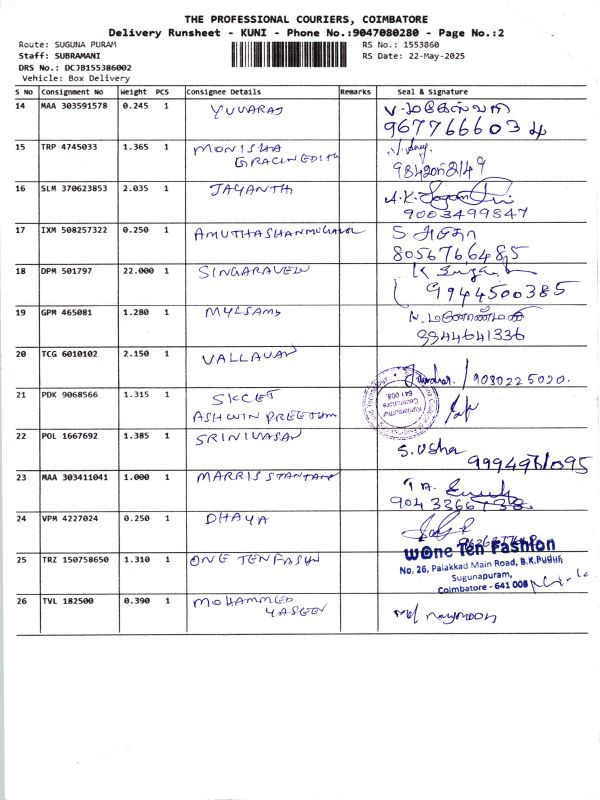 THE PROFESSIONAL COURIERS, COIMBATORE
Delivery Runsheet - KUNI - Phone No.:9047080280 - Page No.:2
Route: SUGUNA PURAM
Staff: SUBRAMANI
DRS No.: DCJB155386002
Vehicle: Box Delivery
RS No.: 1553860
RS Date: 22-May-2025
S No Consignment No Weight PCS Consignee Details Remarks Seal & Signature
14 MAA 303591578 0.245 1 YUVARAJ
9677666034
15 TRP 4745033 1.365 1 MONISHA
GRACIN EDITH
9842058149
16 SLM 370623853 2.035 1 JAYANTH
9003499847
17 IXM 508257322 0.250 1 AMUTHASHANMUGAVEL S.
8056766485
18 DPM 501797 22.000 1 SINGARAVELU
9944500385
19 GPM 465081 1.280 1 MYLSAMY
9944641336
20 TCG 6010102 2.150 1 VALLAVAN
9080225020.
21 PDK 9068566 1.315 1 SKCET
ASHWIN PREETAM
641 008
22 POL 1667692 1.385 1 SRINIVASAN S. Usha
9994961095
23 MAA 303411041 1.000 1 MARRIS
9043366138
24 VPM 4227024 0.250 1 DHAYA
25 TRZ 150758650 1.310 1 ONE TEN FASHN
One Ten Fashion
No. 26, Palakkad Main Road, B.K.Pudur,
Sugunapuram,
Coimbatore - 641 008
26 TVL 182500 0.390 1 MOHAMMED
YASEEN